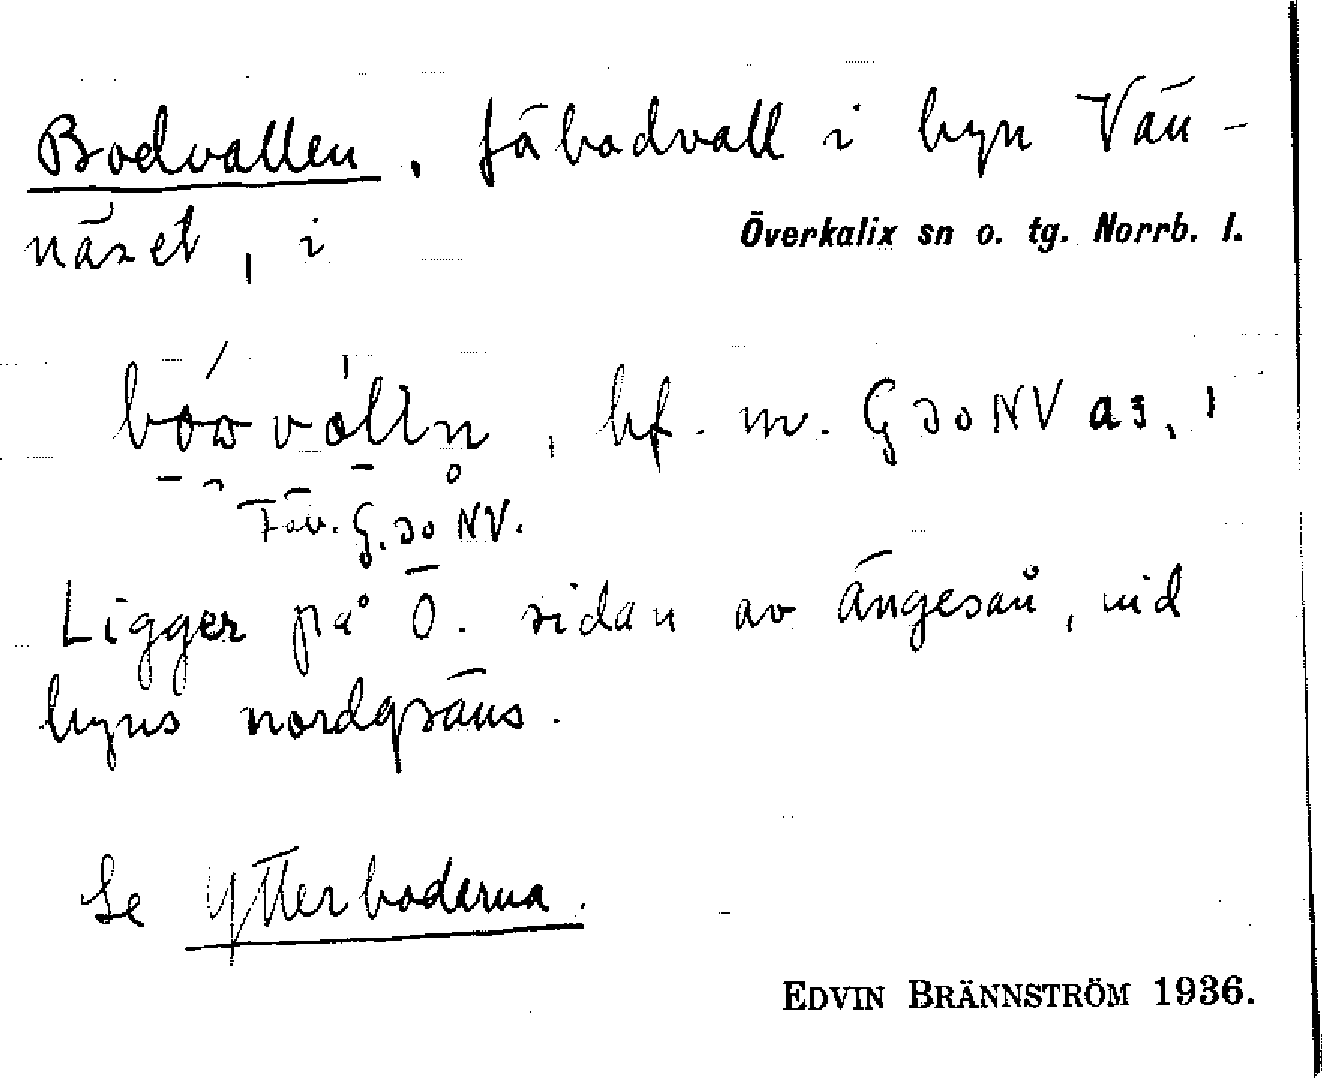 Bodvallen, fäbodvall i byn Vän-
näset, i Överkalix sn o. tg. Norrb. l.
bf. m. G 30 NV a3.
Täv. G. 30 NV.
Ligger på Ö. sidan av Ängesån, vid
byns nordgräns.
Se Ytterboderna.
EDVIN BRÄNNSTRÖM 1936.